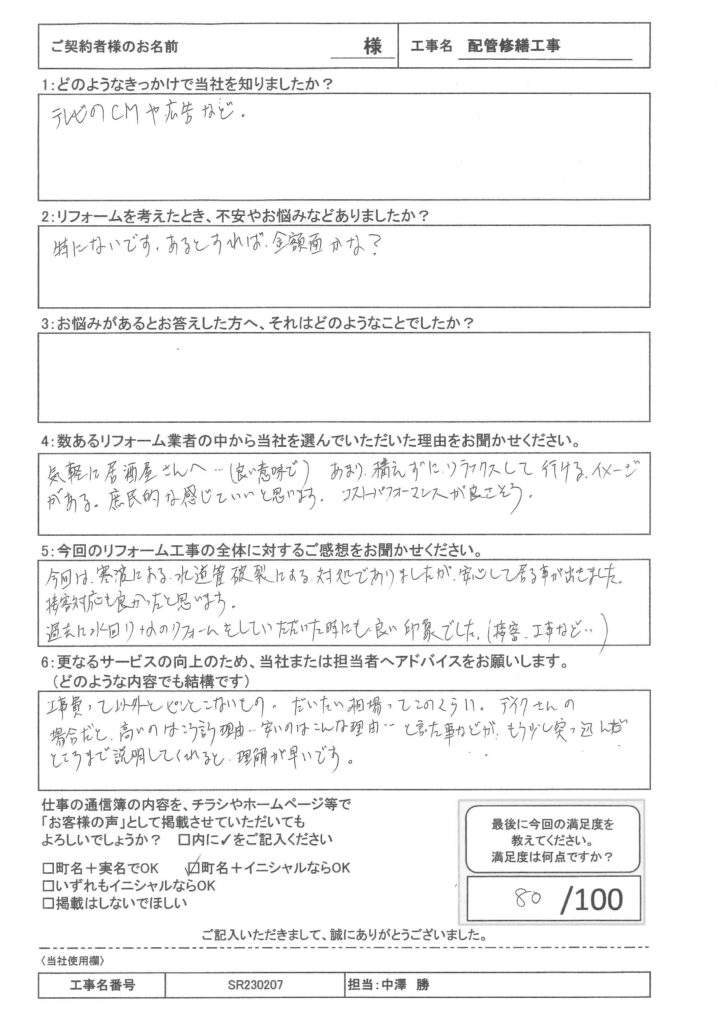 ご契約者様のお名前 様 工事名 配管修繕工事
1:どのようなきっかけで当社を知りましたか？
テレビのCMや広告など。
2:リフォームを考えたとき、不安やお悩みなどありましたか？
特にないです。あるとすれば、金額面かな？
3:お悩みがあるとお答えした方へ、それはどのようなことでしたか？
4:数あるリフォーム業者の中から当社を選んでいただいた理由をお聞かせください。
気軽に居酒屋さんへ…(良い意味で) あまり、構えずにリラックスして行ける、イメージ
がある。庶民的な感じでいいと思います。 コストパフォーマンスが良さそう。
5:今回のリフォーム工事の全体に対するご感想をお聞かせください。
今回は、寒波による、水道管破裂による対処でありましたが、安心して居る事が出来ました。
接客対応も良かったと思います。
過去に水回りのリフォームをしていただいた時にも、良い印象でした。(接客、工事など…)
6:更なるサービスの向上のため、当社または担当者へアドバイスをお願いします。
（どのような内容でも結構です）
工事費って以外とピンとこないもの。だいたい相場ってこのくらい。デイクさんの
場合だと、高いのはこう言う理由…安いのはこんな理由…と言った事などが、もう少し突っ込んだ
ところまで説明してくれると、理解が早いです。
仕事の通信簿の内容を、チラシやホームページ等で
「お客様の声」として掲載させていただいても
よろしいでしょうか？ □内に✓をご記入ください
□町名＋実名でOK ☑町名＋イニシャルならOK
□いずれもイニシャルならOK
□掲載はしないでほしい
最後に今回の満足度を
教えてください。
満足度は何点ですか？
80 /100
ご記入いただきまして、誠にありがとうございました。
〈当社使用欄〉
工事名番号 SR230207 担当:中澤 勝